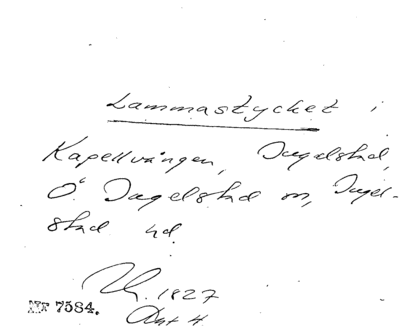 Lammastycket i
Kapellvången, Ingelstad,
Ö. Ingelstad sn, Ingel-
stad hd.
1827
Akt 4
Nr 7584.